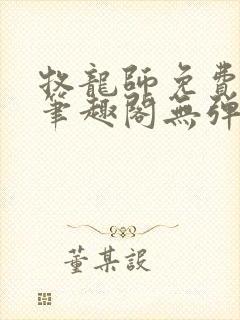 牧龍師免費
筆趣閣無彈
董某設